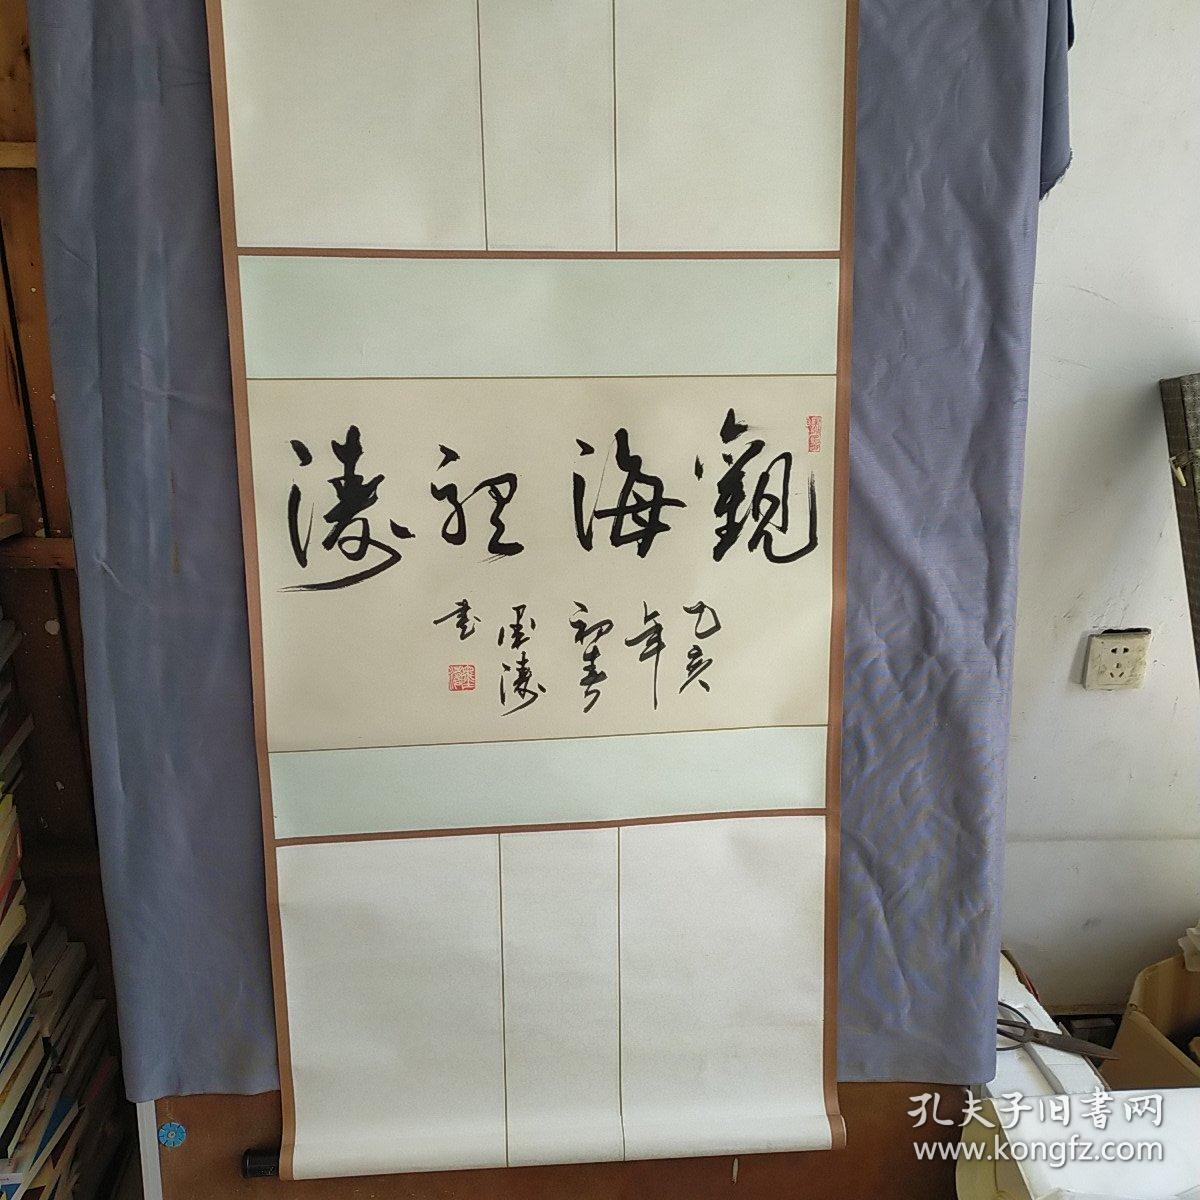 觀海聽濤
乙亥
年
初春
墨濤
書
孔夫子旧書网
www.kongfz.com